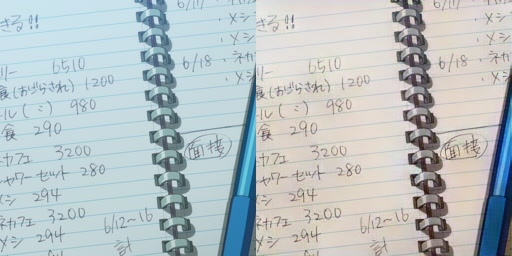 きる!!
リー 6510
食(おごらされ) 1200
ール(〃) 980
食 290
カフェ 3200
ャワーセット 280
シ 294
ネカフェ 3200
メシ 294
6/12~16
計
6/17
・メシ
6/18 ・ネカ
・メシ
面接
きる!!
リー 6510
食(おごらされ) 1200
ール(〃) 980
食 290
カフェ 3200
ャワーセット 280
シ 294
ネカフェ 3200
メシ 294
6/12~16
計
6/17
・メシ
6/18 ・ネカ
・メシ
面接